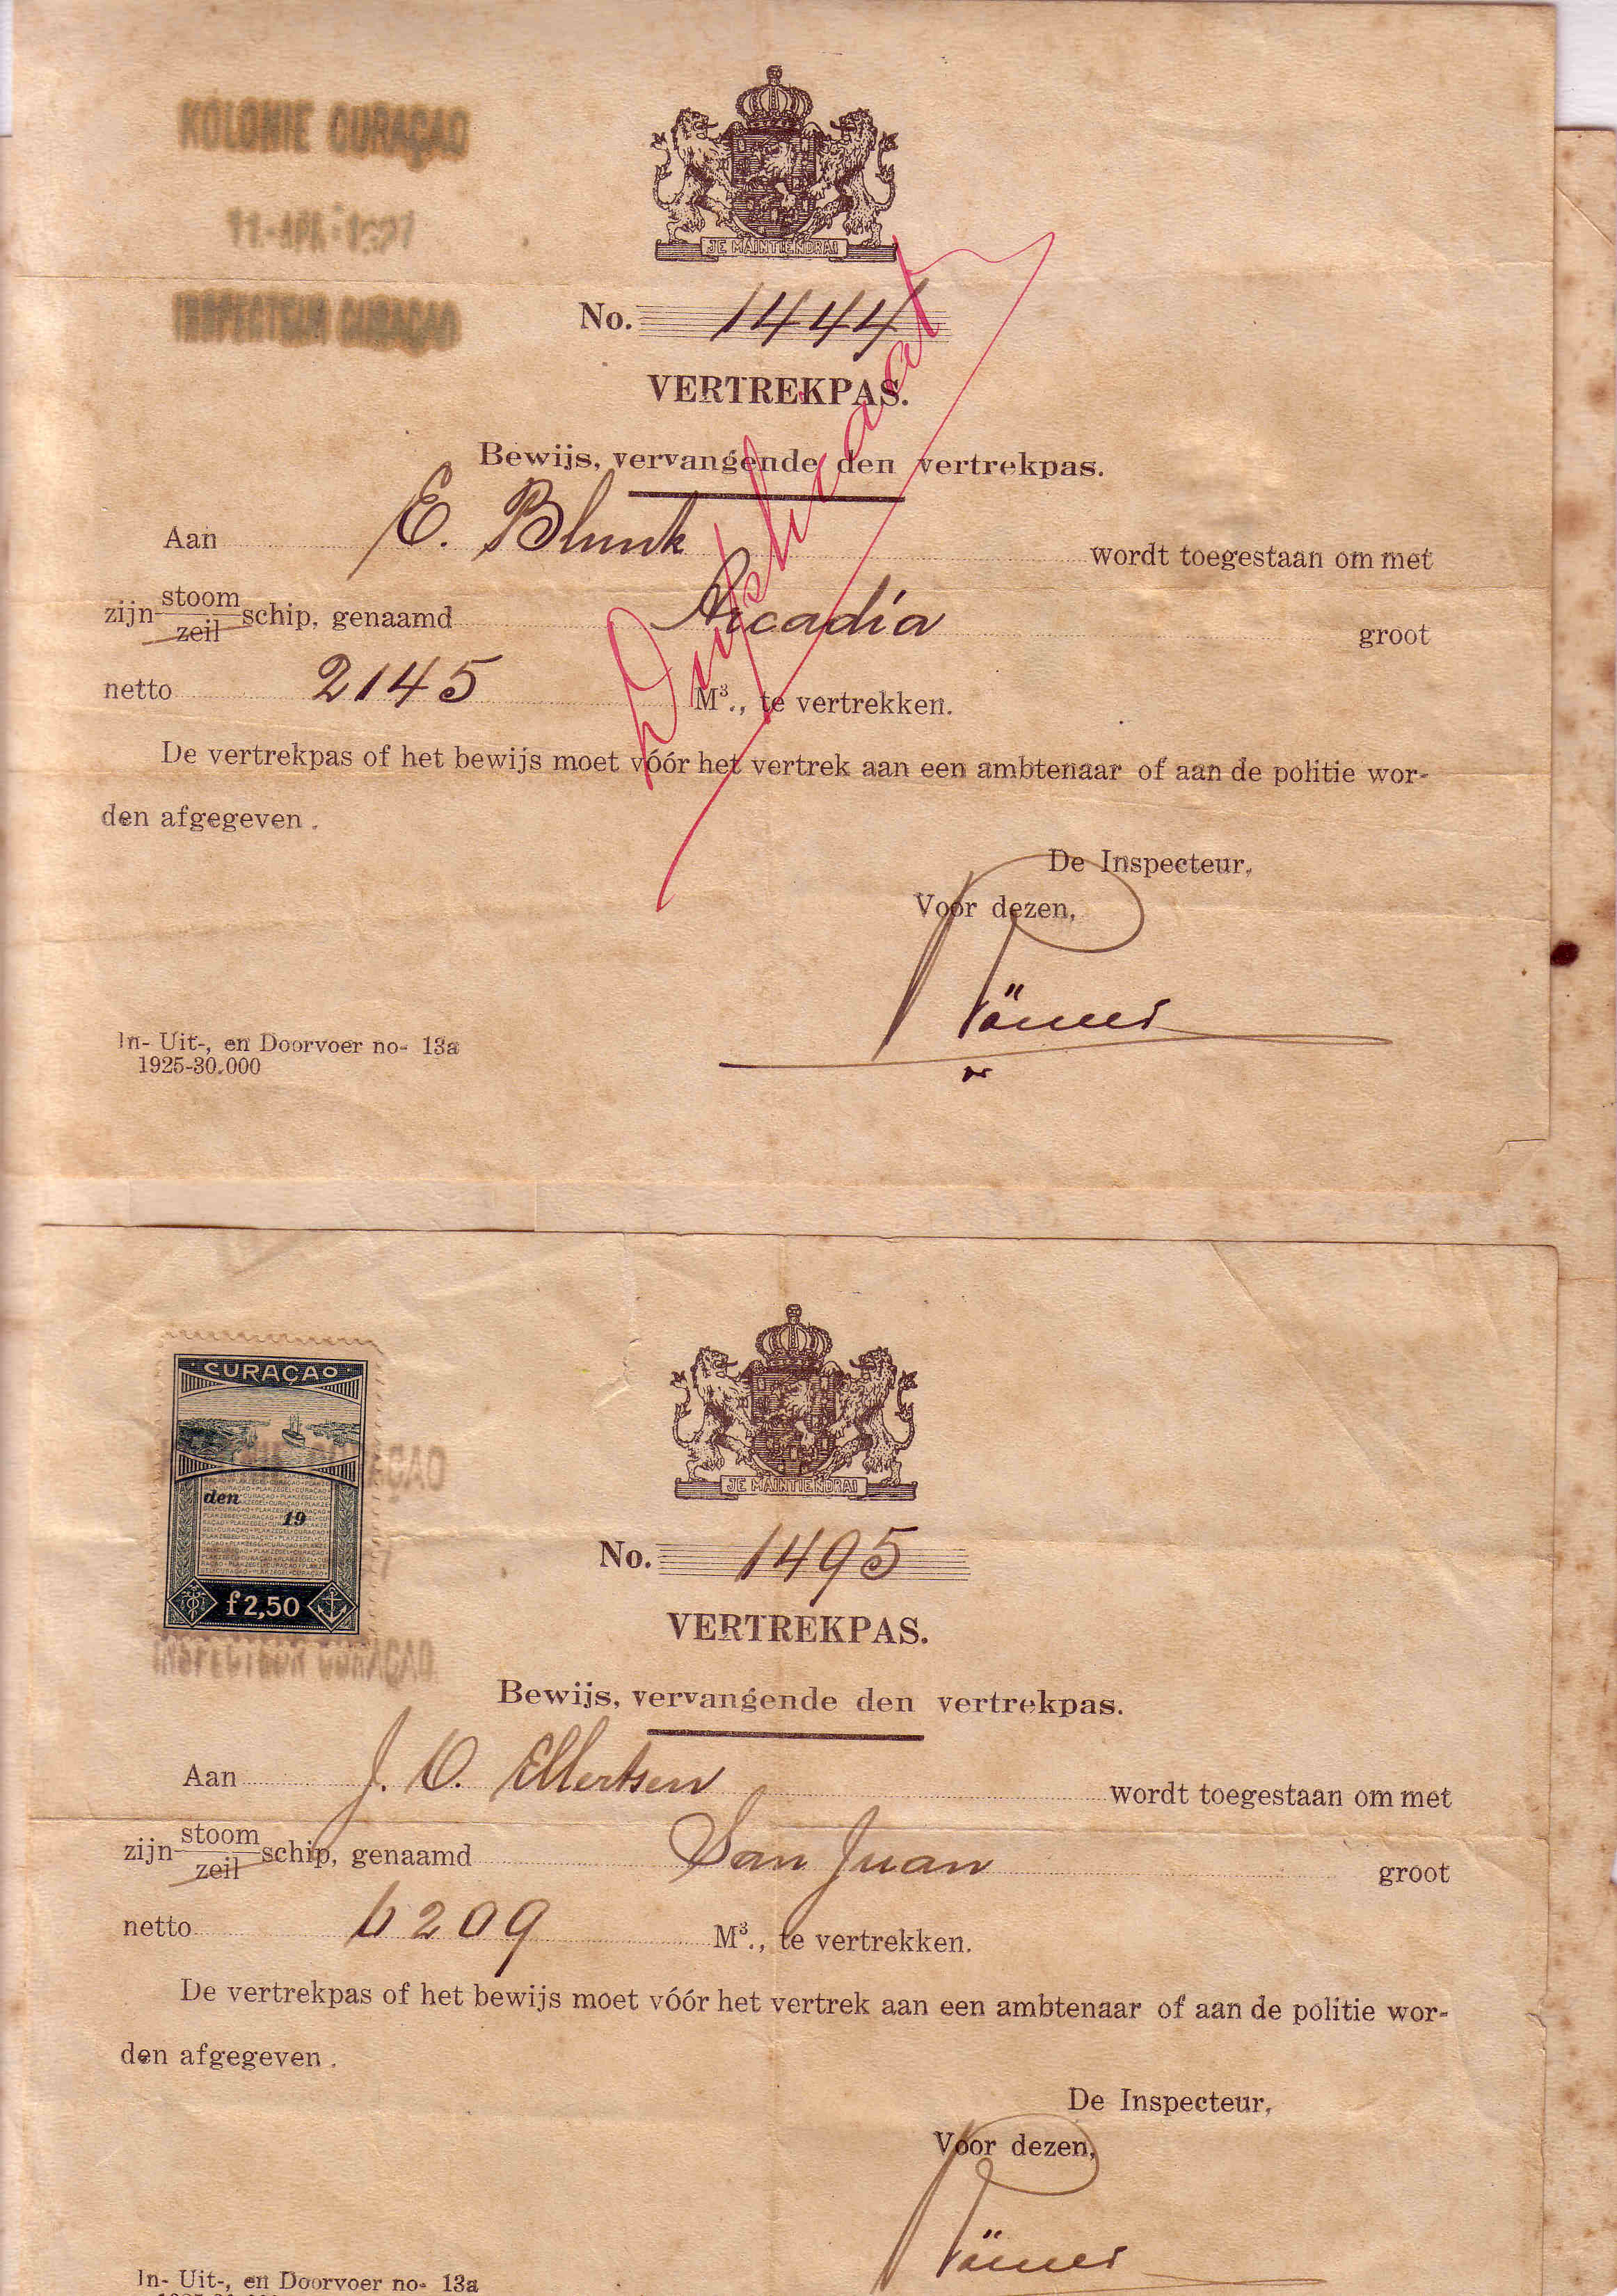 KOLONIE CURAÇAO
11-APR-1927
INSPECTEUR CURAÇAO
JE MAINTIENDRAI
No. 1444
VERTREKPAS.
Duplicaat
Bewijs, vervangende den vertrekpas.
Aan E. Blunk wordt toegestaan om met
zijn stoom
zeil schip, genaamd Arcadia groot
netto 2145 M³., te vertrekken.
De vertrekpas of het bewijs moet vóór het vertrek aan een ambtenaar of aan de politie wor-
den afgegeven.
De Inspecteur,
Voor dezen,
In- Uit-, en Doorvoer no- 13a
1925-30.000
CURAÇAO
den
19
f 2,50
INSPECTEUR CURAÇAO
JE MAINTIENDRAI
No. 1495
VERTREKPAS.
Bewijs, vervangende den vertrekpas.
Aan J. O. Ellertsen wordt toegestaan om met
zijn stoom
zeil schip, genaamd San Juan groot
netto 6209 M³., te vertrekken.
De vertrekpas of het bewijs moet vóór het vertrek aan een ambtenaar of aan de politie wor-
den afgegeven.
De Inspecteur,
Voor dezen,
In- Uit-, en Doorvoer no- 13a